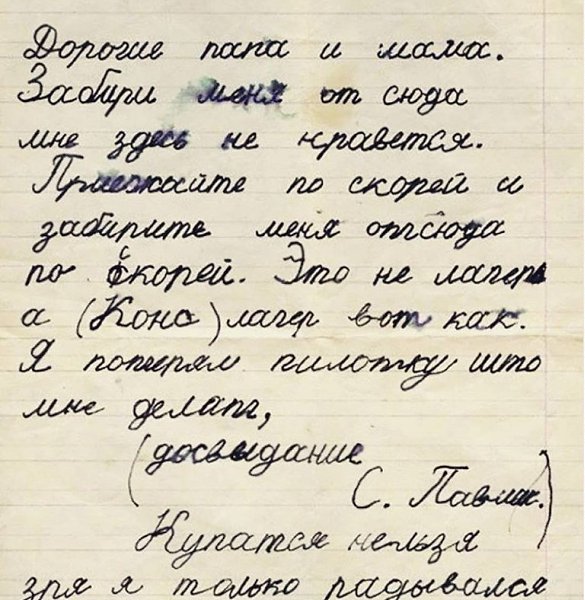 Дорогие папа и мама.
Забири меня от сюда
мне здесь не нравется.
Приежайте по скорей и
забирите меня отсюда
по скорей. Это не лагерь
а (Конс) лагер вот как.
Я потерял пилотку што
мне делат,
(досвидание
С. Павлик.)
Купатся нельзя
зря я только радывался